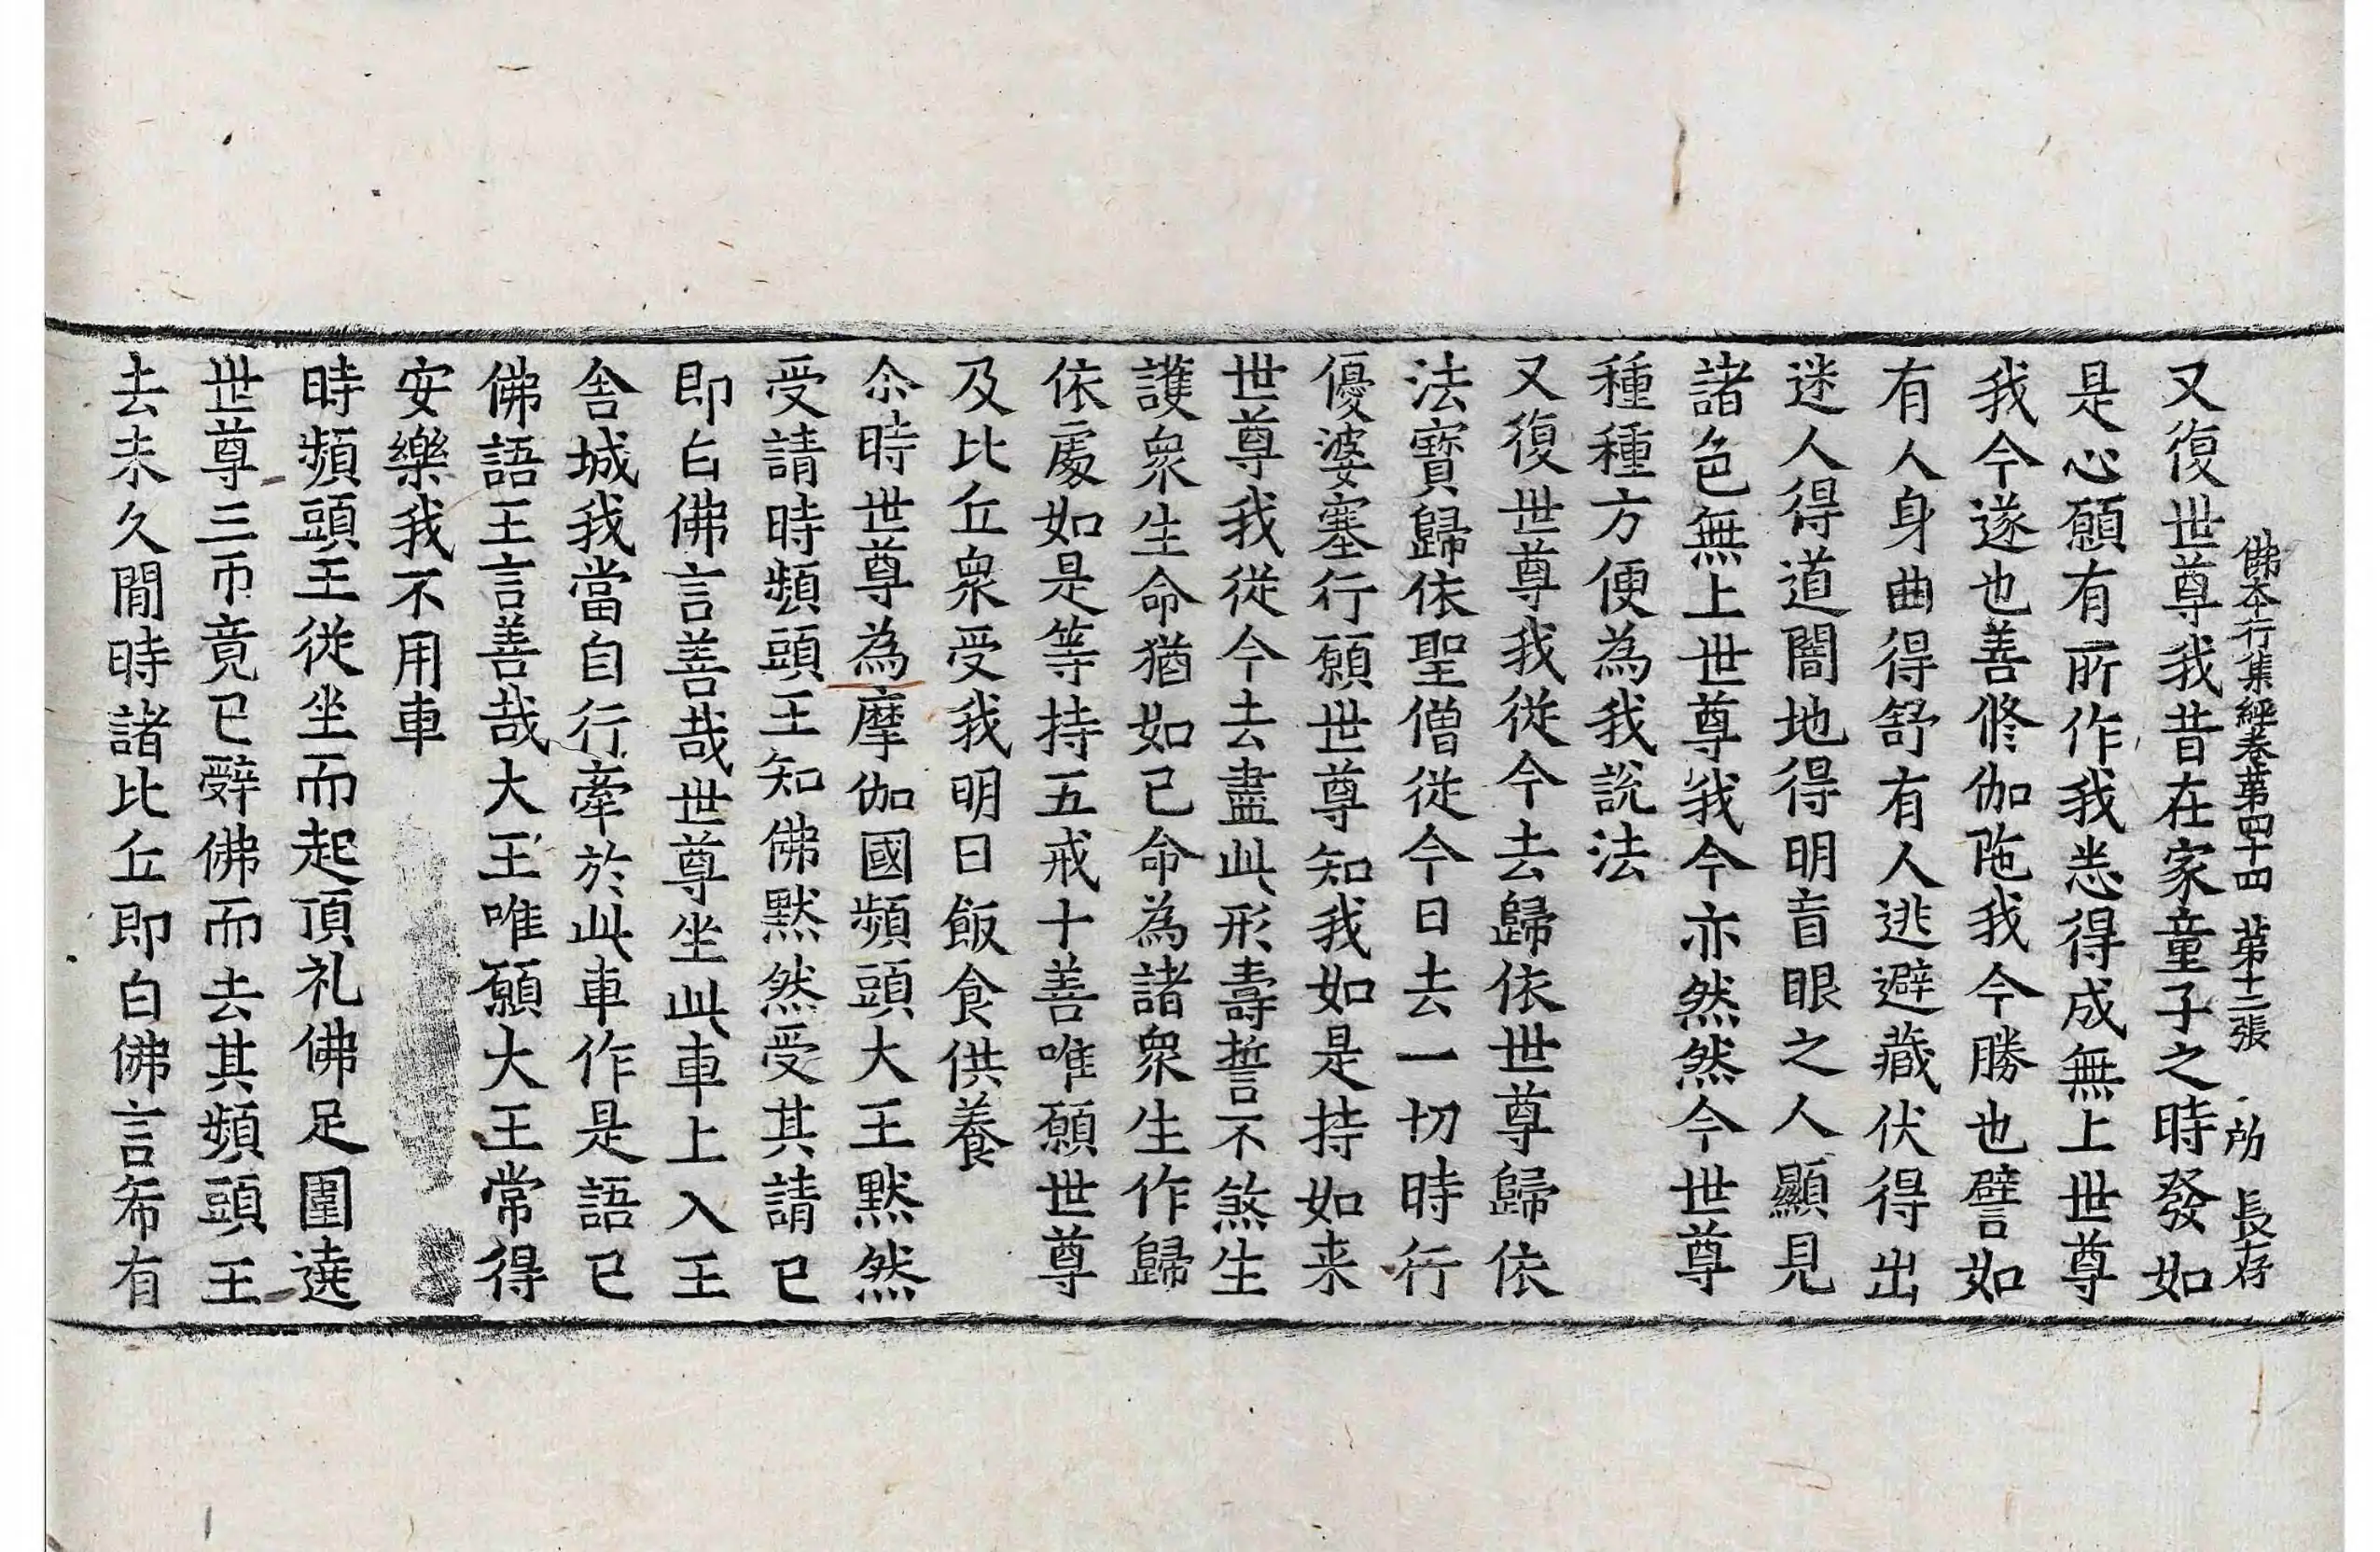 佛本行集經卷第四十四 第十二張 所 長存
又復世尊我昔在家童子之時發如
是心願有所作我悉得成無上世尊
我今遂也善修伽陁我今勝也譬如
有人身曲得舒有人逃避藏伏得出
迷人得道闇地得明盲眼之人顯見
諸色無上世尊我今亦然然今世尊
種種方便為我說法
又復世尊我從今去歸依世尊歸依
法寶歸依聖僧從今日去一切時行
優婆塞行願世尊知我如是持如来
世尊我從今去盡此形壽誓不煞生
護衆生命猶如己命為諸衆生作歸
依處如是等持五戒十善唯願世尊
及比丘衆受我明日飯食供養
尒時世尊為摩伽國頻頭大王默然
受請時頻頭王知佛默然受其請已
即白佛言善哉世尊坐此車上入王
舎城我當自行牽於此車作是語已
佛語王言善哉大王唯願大王常得
安樂我不用車
時頻頭王從坐而起頂礼佛足圍遶
世尊三帀竟已辭佛而去其頻頭王
去未久間時諸比丘即白佛言希有